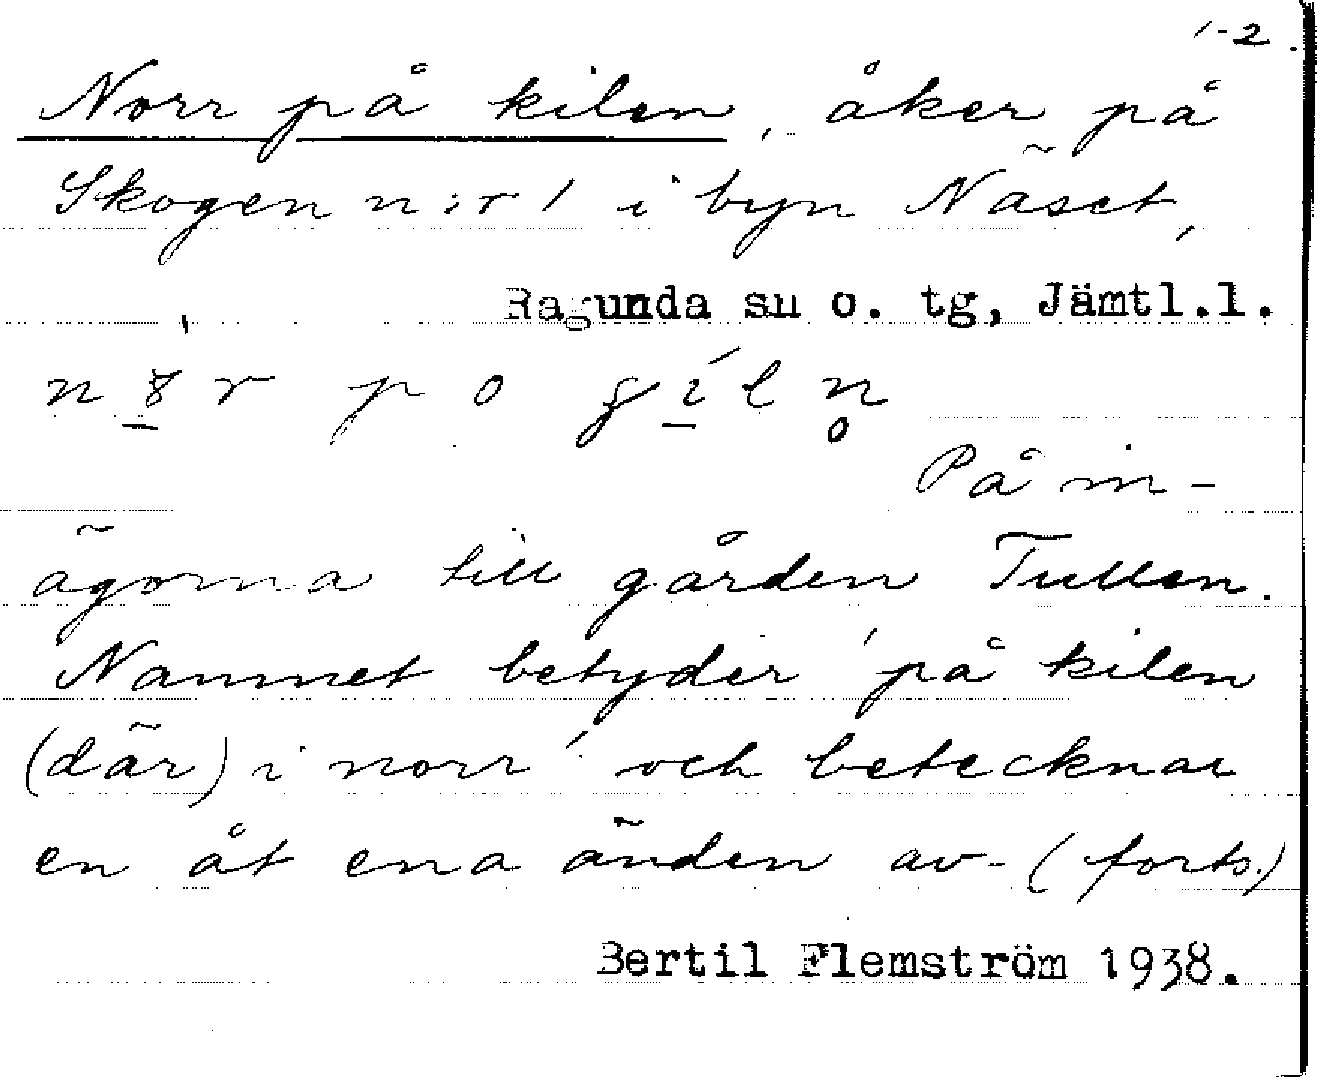 1-2.
Norr på kilen, åker på
Skogen n:r 1 i byn Näset,
Ragunda sn o. tg, Jämtl.l.
På in-
ägorna till gården Tullen.
Namnet betyder 'på kilen
(där) i norr' och betecknar
en åt ena änden av- (forts.)
Bertil Flemström 1938.